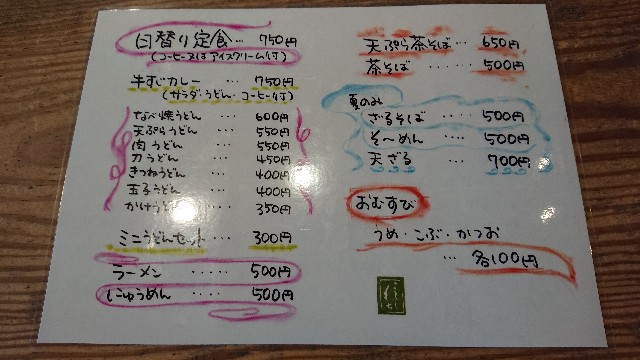 日替り定食… 750円
(コーヒー又はアイスクリーム付)
牛すじカレー … 750円
(サラダ・うどん・コーヒー付)
なべ焼うどん … 600円
天ぷらうどん … 550円
肉うどん … 550円
刀うどん … 450円
きつねうどん … 400円
玉子うどん … 400円
かけうどん … 350円
ミニうどんセット … 300円
ラーメン …… 500円
にゅうめん …… 500円
天ぷら茶そば… 650円
茶そば …… 500円
夏のみ
ざるそば …… 500円
そ〜めん …… 500円
天ざる …… 700円
おむすび
うめ・こぶ・かつお
… 各100円